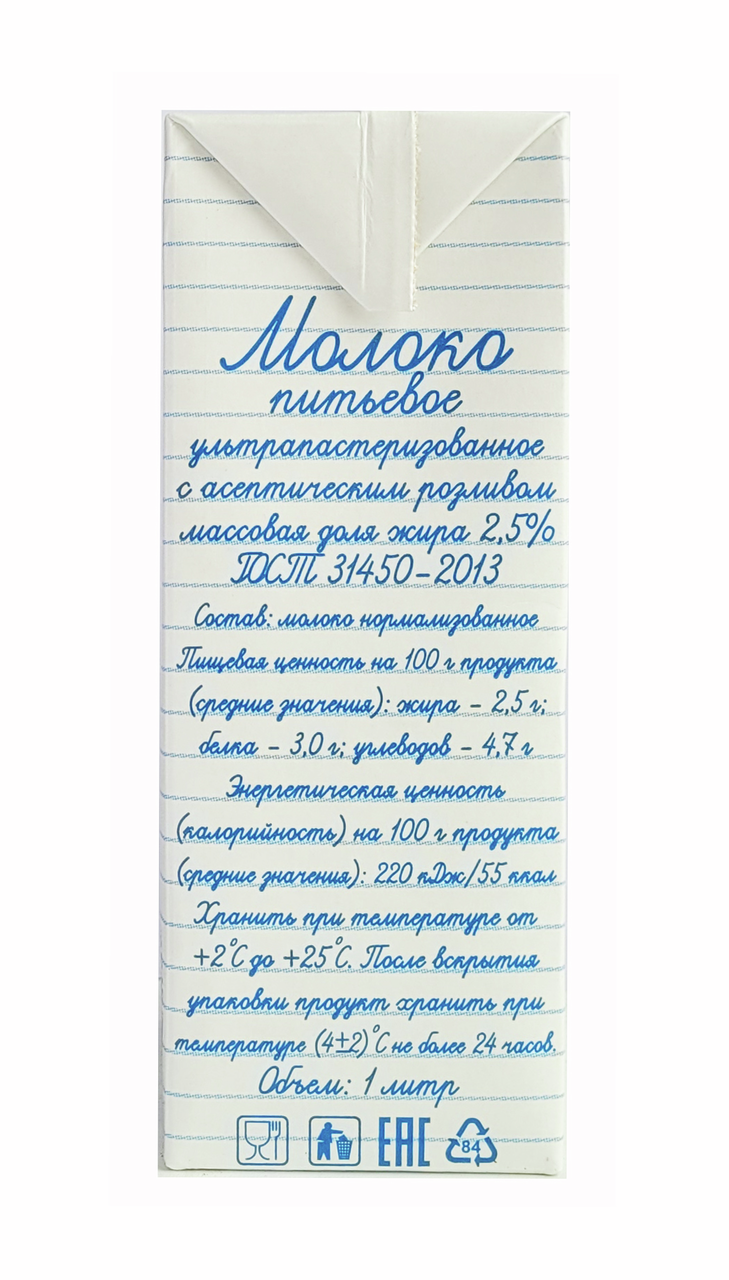 Молоко
питьевое
ультрапастеризованное
с асептическим розливом
массовая доля жира 2,5%
ГОСТ 31450-2013
Состав: молоко нормализованное
Пищевая ценность на 100 г продукта
(средние значения): жира - 2,5 г;
белка - 3,0 г; углеводов - 4,7 г
Энергетическая ценность
(калорийность) на 100 г продукта
(средние значения): 220 кДж/55 ккал
Хранить при температуре от
+2°C до +25°C. После вскрытия
упаковки продукт хранить при
температуре (4±2)°C не более 24 часов.
Объем: 1 литр
EAC 84